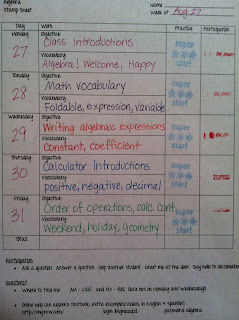 Algebra
Stamp Sheet
Name
Week of Aug. 27
Day Work Practice Participation
Monday Objective
27 Class Introductions
Vocabulary
Algebra! Welcome, Happy
super
star!
Tuesday Objective
28 Math Vocabulary
Vocabulary
Foldable, expression, variable
super
star!
Wednesday Objective
29 Writing algebraic expressions
Vocabulary
Constant, coefficient
super
star!
Thursday Objective
30 Calculator Introductions
Vocabulary
positive, negative, decimal
super
star!
Friday Objective
31 Order of operations, calc. cont.
Vocabulary
Weekend, holiday, geometry
super
star!
Totals
Participation
Ask a question. Answer a question. Help another student. Greet me at the door. Say hello to
Questions?
Where to find me: on Monday and Wednesday!
Online help can algebra textbook, extra examples/videos, in English & Spanish!
password algebra